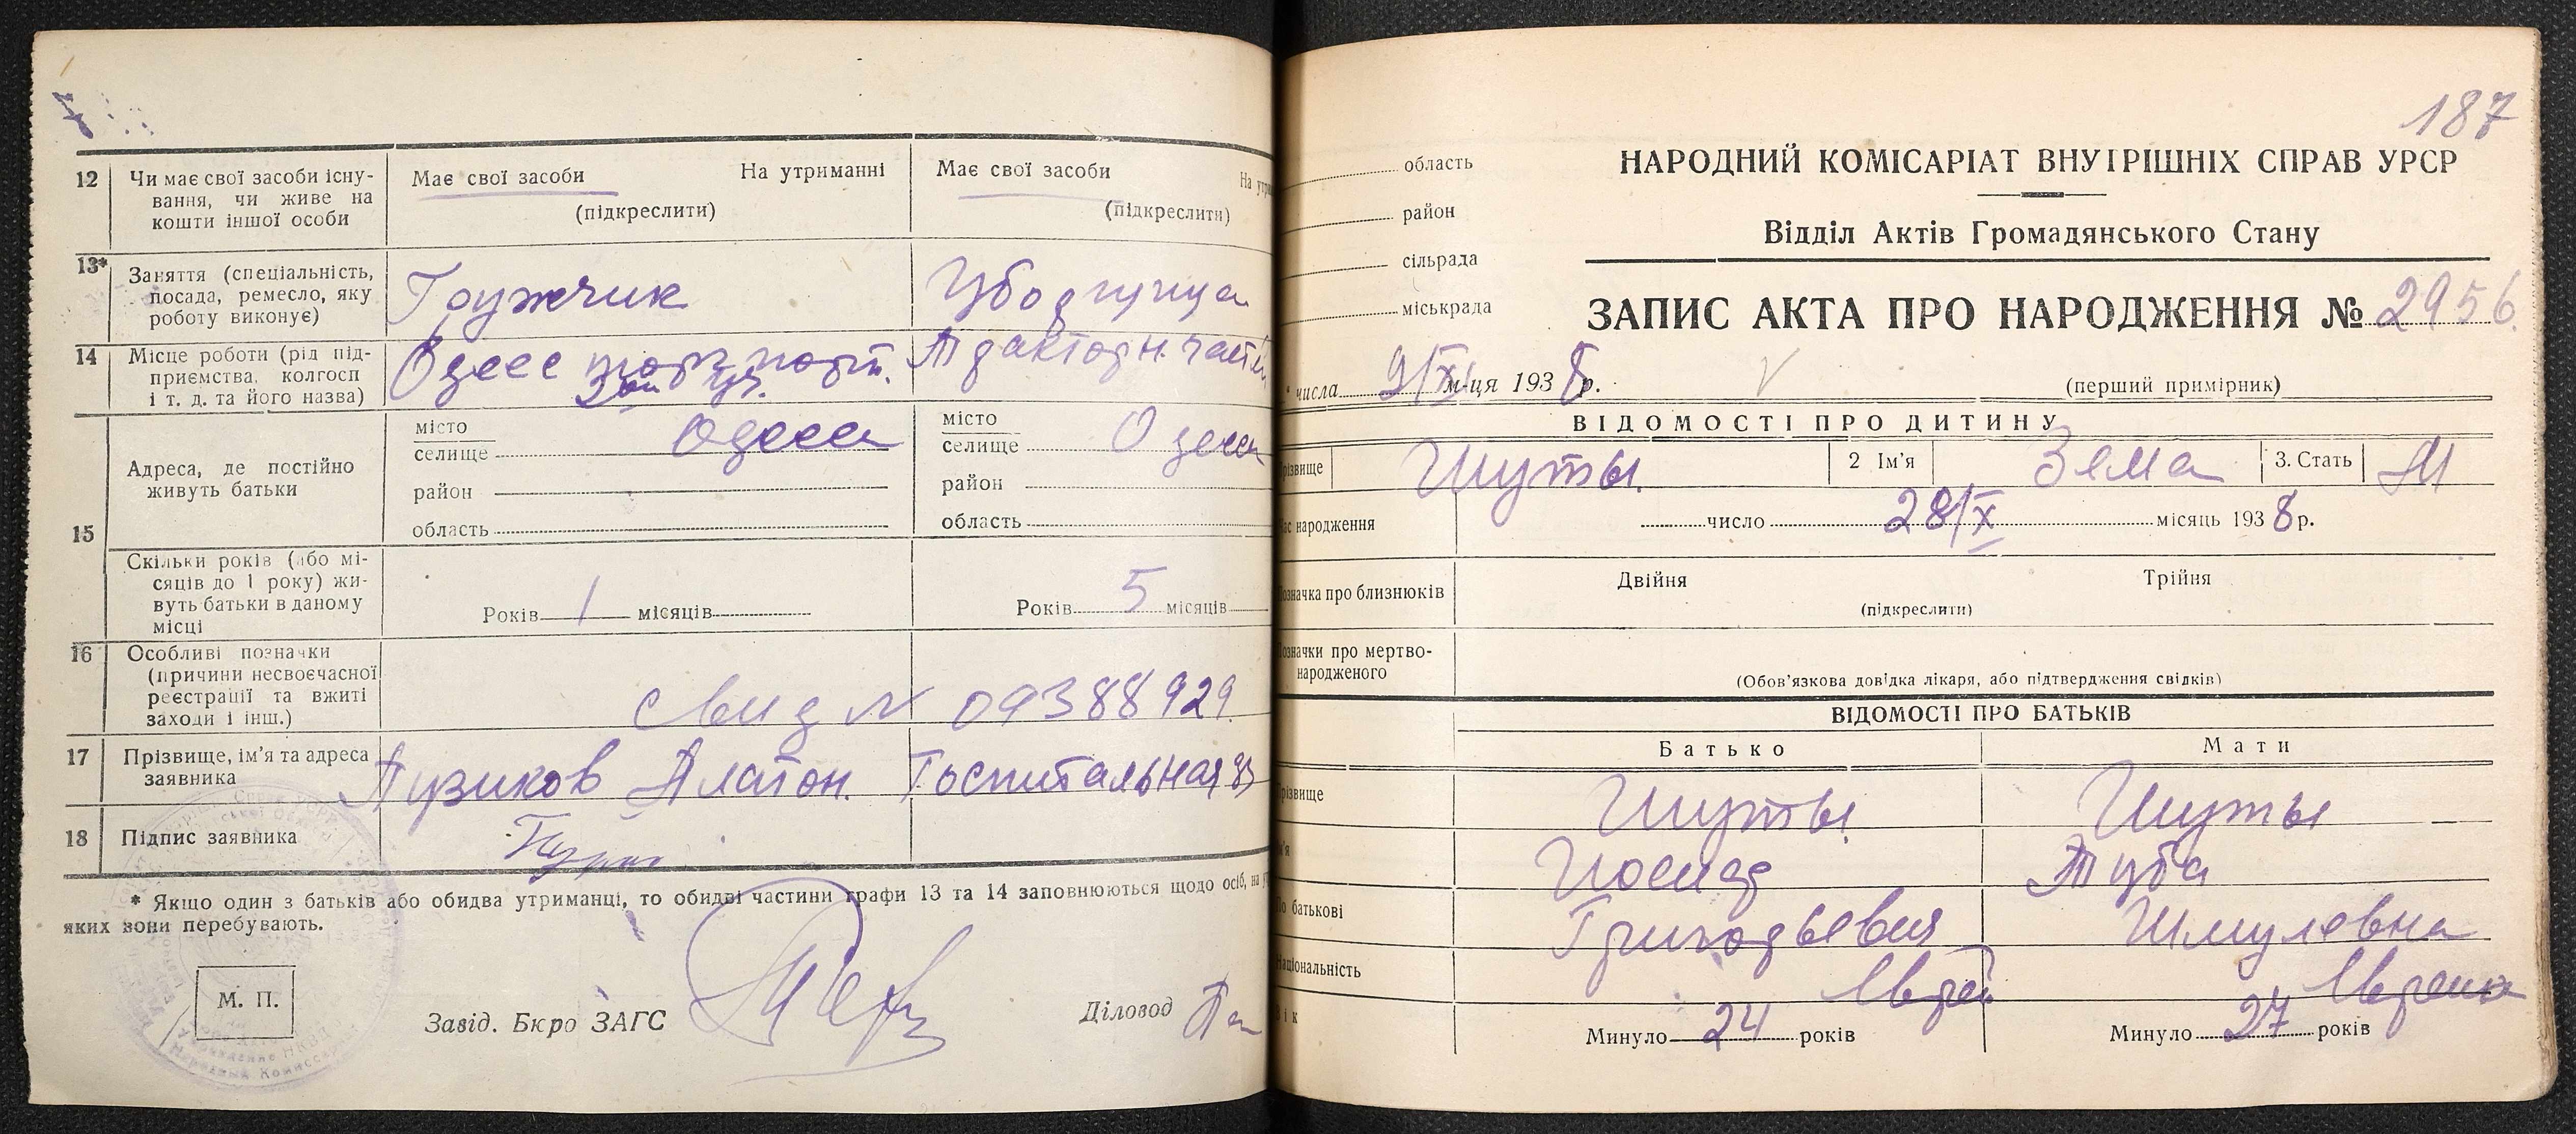 12 Чи має свої засоби існу-
вання, чи живе на
кошти іншої особи
Має свої засоби На утриманні
(підкреслити)
Має свої засоби
(підкреслити)
13* Заняття (спеціальність,
посада, ремесло, яку
роботу виконує)
Грузчик
14 Місце роботи (рід під-
приємства, колгосп
і т. д. та його назва)
Одесс порт.
15 Адреса, де постійно
живуть батьки
місто
селище Одесса
район
область
місто
селище Одесса
район
область
Скільки років (або мі-
сяців до 1 року) жи-
вуть батьки в даному
місці
Років 1 місяців
Років 5 місяців
16 Особливі позначки
(причини несвоєчасної
реєстрації та вжиті
заходи і інш.)
Свид N 09388929.
17 Прізвище, ім'я та адреса
заявника
Пузиков Платон. Госпитальная
18 Підпис заявника
* Якщо один з батьків або обидва утриманці, то обидві частини графи 13 та 14 заповнюються щодо осіб, на
яких вони перебувають.
М. П.
Завід. Бюро ЗАГС
Діловод
187
область
район
сільрада
міськрада
НАРОДНИЙ КОМІСАРІАТ ВНУТРІШНІХ СПРАВ УРСР
Відділ Актів Громадянського Стану
ЗАПИС АКТА ПРО НАРОДЖЕННЯ № 2956.
числа 9/XI м-ця 1938 р.
(перший примірник)
ВІДОМОСТІ ПРО ДИТИНУ
Прізвище Шуты. 2 Ім'я Зема 3. Стать М
Час народження число 28/X місяць 1938 р.
Позначка про близнюків Двійня Трійня
(підкреслити)
Позначки про мертво-
народженого
(Обов'язкова довідка лікаря, або підтвердження свідків)
ВІДОМОСТІ ПРО БАТЬКІВ
Батько Мати
Прізвище Шуты Шуты
Ім'я Иосиф Туба
По батькові Григорьевич Шмулевна
Національність Еврей Еврейка
Вік Минуло 24 років Минуло 27 років